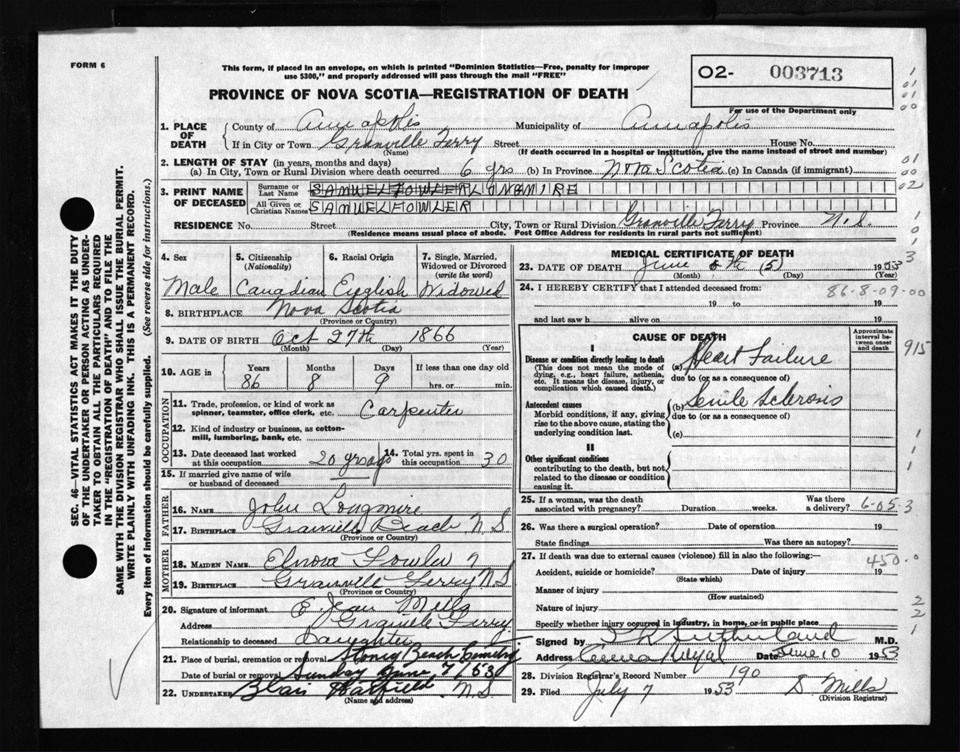 FORM 6
This form, if placed in an envelope, on which is printed "Dominion Statistics—Free, penalty for improper
use $300," and properly addressed will pass through the mail "FREE"
O2- 003713
PROVINCE OF NOVA SCOTIA—REGISTRATION OF DEATH
For use of the Department only
1. PLACE OF DEATH { County of Annapolis Municipality of Annapolis
If in City or Town Granville Ferry Street House No.
(Name) (If death occurred in a hospital or institution, give the name instead of street and number)
2. LENGTH OF STAY (in years, months and days)
(a) In City, Town or Rural Division where death occurred 6 yrs (b) In Province Nova Scotia (c) In Canada (if immigrant)
3. PRINT NAME OF DECEASED { Surname or Last Name SAMUEL FOWLER LONGMIRE
All Given or Christian Names SAMUEL FOWLER
RESIDENCE No. Street City, Town or Rural Division Granville Ferry Province N.S.
(Residence means usual place of abode. Post Office Address for residents in rural parts not sufficient)
4. Sex 5. Citizenship (Nationality) 6. Racial Origin 7. Single, Married, Widowed or Divorced (write the word)
Male Canadian English Widowed
8. BIRTHPLACE Nova Scotia
(Province or Country)
9. DATE OF BIRTH Oct 27th 1866
(Month) (Day) (Year)
10. AGE in Years Months Days If less than one day old
86 8 9 hrs. or min.
OCCUPATION
11. Trade, profession, or kind of work as spinner, teamster, office clerk, etc. Carpenter
12. Kind of industry or business, as cotton-mill, lumbering, bank, etc.
13. Date deceased last worked at this occupation 20 yrs ago 14. Total yrs. spent in this occupation 30
15. If married give name of wife or husband of deceased
FATHER
16. Name John Longmire
17. Birthplace Granville Beach N.S
(Province or Country)
MOTHER
18. MAIDEN NAME Elnora Fowler
19. BIRTHPLACE Granvill Ferry N.S
(Province or Country)
20. Signature of informant E. Jean Mills
Address Granville Ferry
Relationship to deceased Daughter
21. Place of burial, cremation or removal Stoney Beach Cemetry
Date of burial or removal Sunday June 7/53
22. Undertaker Blair N.S.
(Name and address)
MEDICAL CERTIFICATE OF DEATH
23. DATE OF DEATH June 5th (5) 1953
(Month) (Day) (Year)
24. I HEREBY CERTIFY that I attended deceased from: 86-8-09-00
19 to 19
and last saw h alive on 19
CAUSE OF DEATH
Approximate interval between onset and death
I
Disease or condition directly leading to death (a) Heart Failure
(This does not mean the mode of dying, e.g., heart failure, asthenia, etc. It means the disease, injury, or complication which caused death.)
due to (or as a consequence of)
Antecedent causes (b) Senile Sclerosis
Morbid conditions, if any, giving rise to the above cause, stating the underlying condition last.
due to (or as a consequence of)
(c)
II
Other significant conditions
contributing to the death, but not related to the disease or condition causing it.
915
25. If a woman, was the death associated with pregnancy? Duration weeks. Was there a delivery? 6-05-3
26. Was there a surgical operation? Date of operation 19
State findings Was there an autopsy?
27. If death was due to external causes (violence) fill in also the following:— 450.0
Accident, suicide or homicide? Date of injury 19
(State which)
Manner of injury
(How sustained)
Nature of injury
Specify whether injury occurred in industry, in home, or in public place
Signed by Sutherland M.D.
Address Anna Royal Date June 10 1953
28. Division Registrar's Record Number 190
29. Filed July 7 1953 S. Mills
(Division Registrar)
SEC. 46—VITAL STATISTICS ACT MAKES IT THE DUTY
OF THE UNDERTAKER OR PERSON ACTING AS UNDER-
TAKER TO OBTAIN ALL THE PARTICULARS REQUIRED
IN THE "REGISTRATION OF DEATH" AND TO FILE THE
SAME WITH THE DIVISION REGISTRAR WHO SHALL ISSUE THE BURIAL PERMIT.
WRITE PLAINLY WITH UNFADING INK. THIS IS A PERMANENT RECORD.
Every item of information should be carefully supplied. (See reverse side for instructions.)